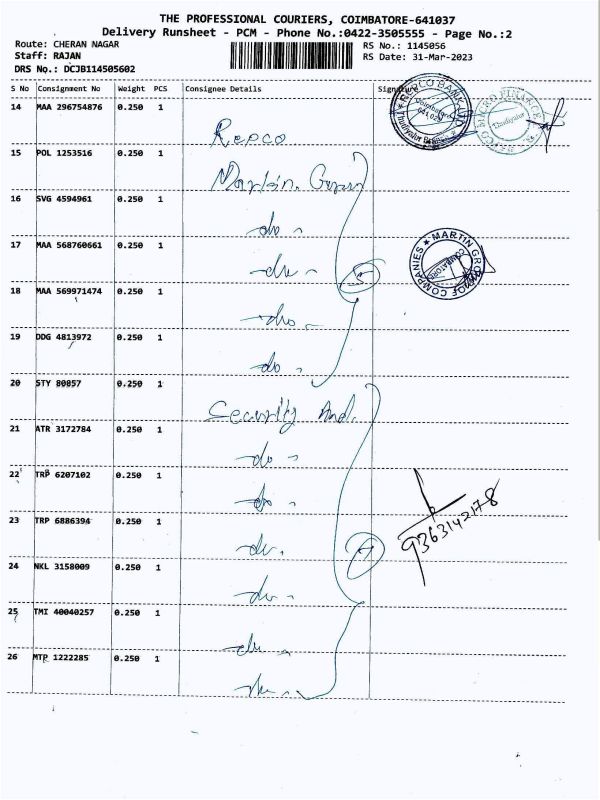 THE PROFESSIONAL COURIERS, COIMBATORE-641037
Delivery Runsheet - PCM - Phone No.:0422-3505555 - Page No.:2
Route: CHERAN NAGAR RS No.: 1145056
Staff: RAJAN RS Date: 31-Mar-2023
DRS No.: DCJB114505602
S No Consignment No Weight PCS Consignee Details Signature
14 MAA 296754876 0.250 1
Repco
15 POL 1253516 0.250 1
Martin
16 SVG 4594961 0.250 1
do
17 MAA 568760661 0.250 1
do
18 MAA 569971474 0.250 1
do
19 DDG 4813972 0.250 1
do
20 STY 80857 0.250 1
Security And.
21 ATR 3172784 0.250 1
do
22 TRP 6207102 0.250 1
do
23 TRP 6886394 0.250 1
do
24 NKL 3158009 0.250 1
do
25 TMI 40040257 0.250 1
do
26 MTP 1222285 0.250 1
do
REPCO BANK LTD
Coimbatore
641 029
Thudiyalur
REPCO MICRO FINANCE
Thudiyalur
MARTIN GROUP OF COMPANIES
COIMBATORE
9363142178